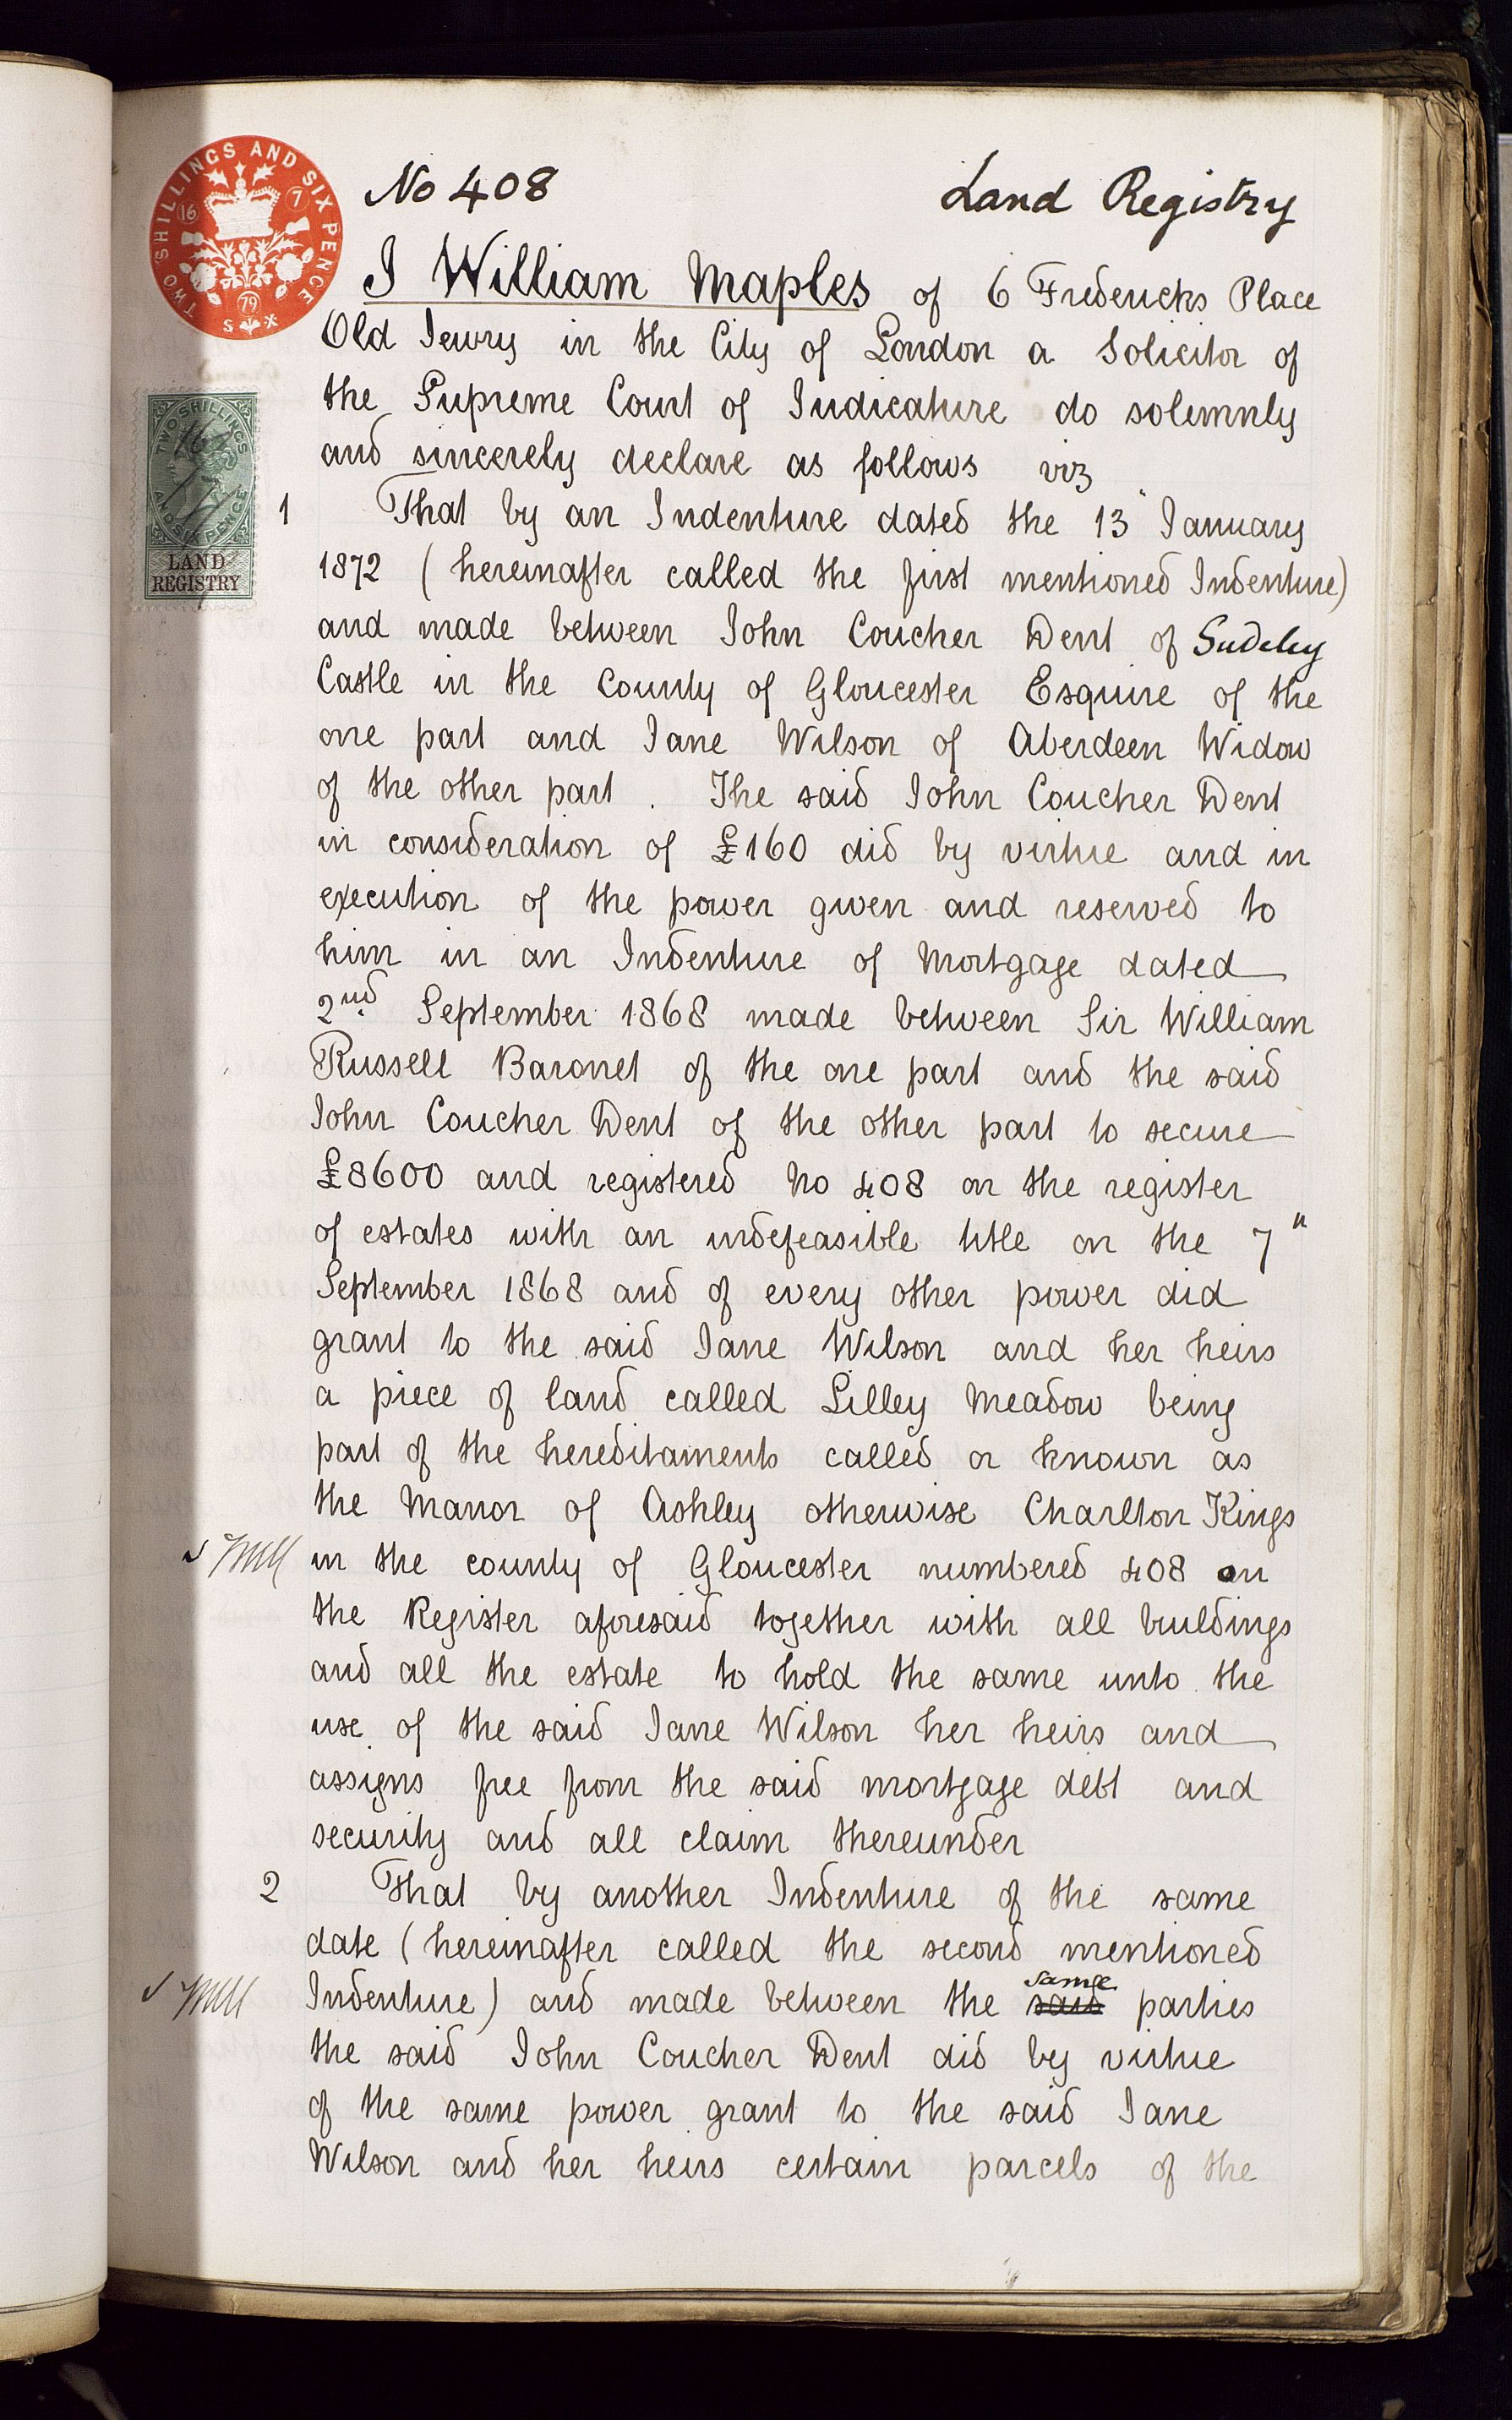 No 408
Land Registry
TWO SHILLINGS AND SIX PENCE
16
7
79
I William Maples of 6 Fredericks Place
Old Jewry in the City of London a Solicitor of
the Supreme Court of Judicature do solemnly
and sincerely declare as follows viz
TWO SHILLINGS
AND SIX PENCE
LAND
REGISTRY
1 That by an Indenture dated the 13" January
1872 (hereinafter called the first mentioned Indenture)
and made between John Coucher Dent of Sudeley
Castle in the County of Gloucester Esquire of the
one part and Jane Wilson of Aberdeen Widow
of the other part . The said John Coucher Dent
in consideration of £160 did by virtue and in
execution of the power given and reserved to
him in an Indenture of Mortgage dated
2nd September 1868 made between Sir William
Russell Baronet of the one part and the said
John Coucher Dent of the other part to secure
£8600 and registered No 408 on the register
of estates with an indefeasible title on the 7"
September 1868 and of every other power did
grant to the said Jane Wilson and her heirs
a piece of land called Lilley Meadow being
part of the hereditaments called or known as
the Manor of Ashley otherwise Charlton Kings
in the county of Gloucester numbered 408 on
the Register aforesaid together with all buildings
and all the estate to hold the same unto the
use of the said Jane Wilson her heirs and
assigns free from the said mortgage debt and
security and all claim thereunder
2 That by another Indenture of the same
date (hereinafter called the second mentioned
same
Indenture) and made between the said parties
the said John Coucher Dent did by virtue
of the same power grant to the said Jane
Wilson and her heirs certain parcels of the